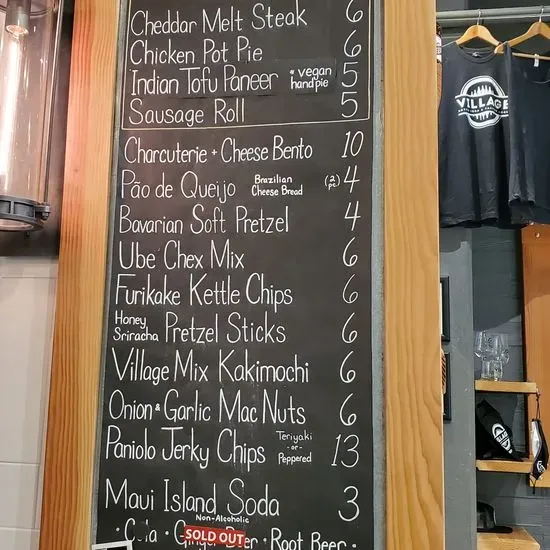 Cheddar Melt Steak 6
Chicken Pot Pie 6
Indian Tofu Paneer * vegan handpie 5
Sausage Roll 5
Charcuterie + Cheese Bento 10
Pão de Queijo Brazilian Cheese Bread (2 pc) 4
Bavarian Soft Pretzel 4
Ube Chex Mix 6
Furikake Kettle Chips 6
Honey Sriracha Pretzel Sticks 6
Village Mix Kakimochi 6
Onion & Garlic Mac Nuts 6
Paniolo Jerky Chips Teriyaki -or- Peppered 13
Maui Island Soda 3
Non-Alcoholic
• Cola • Ginger Beer • Root Beer •
SOLD OUT
VILLAGE